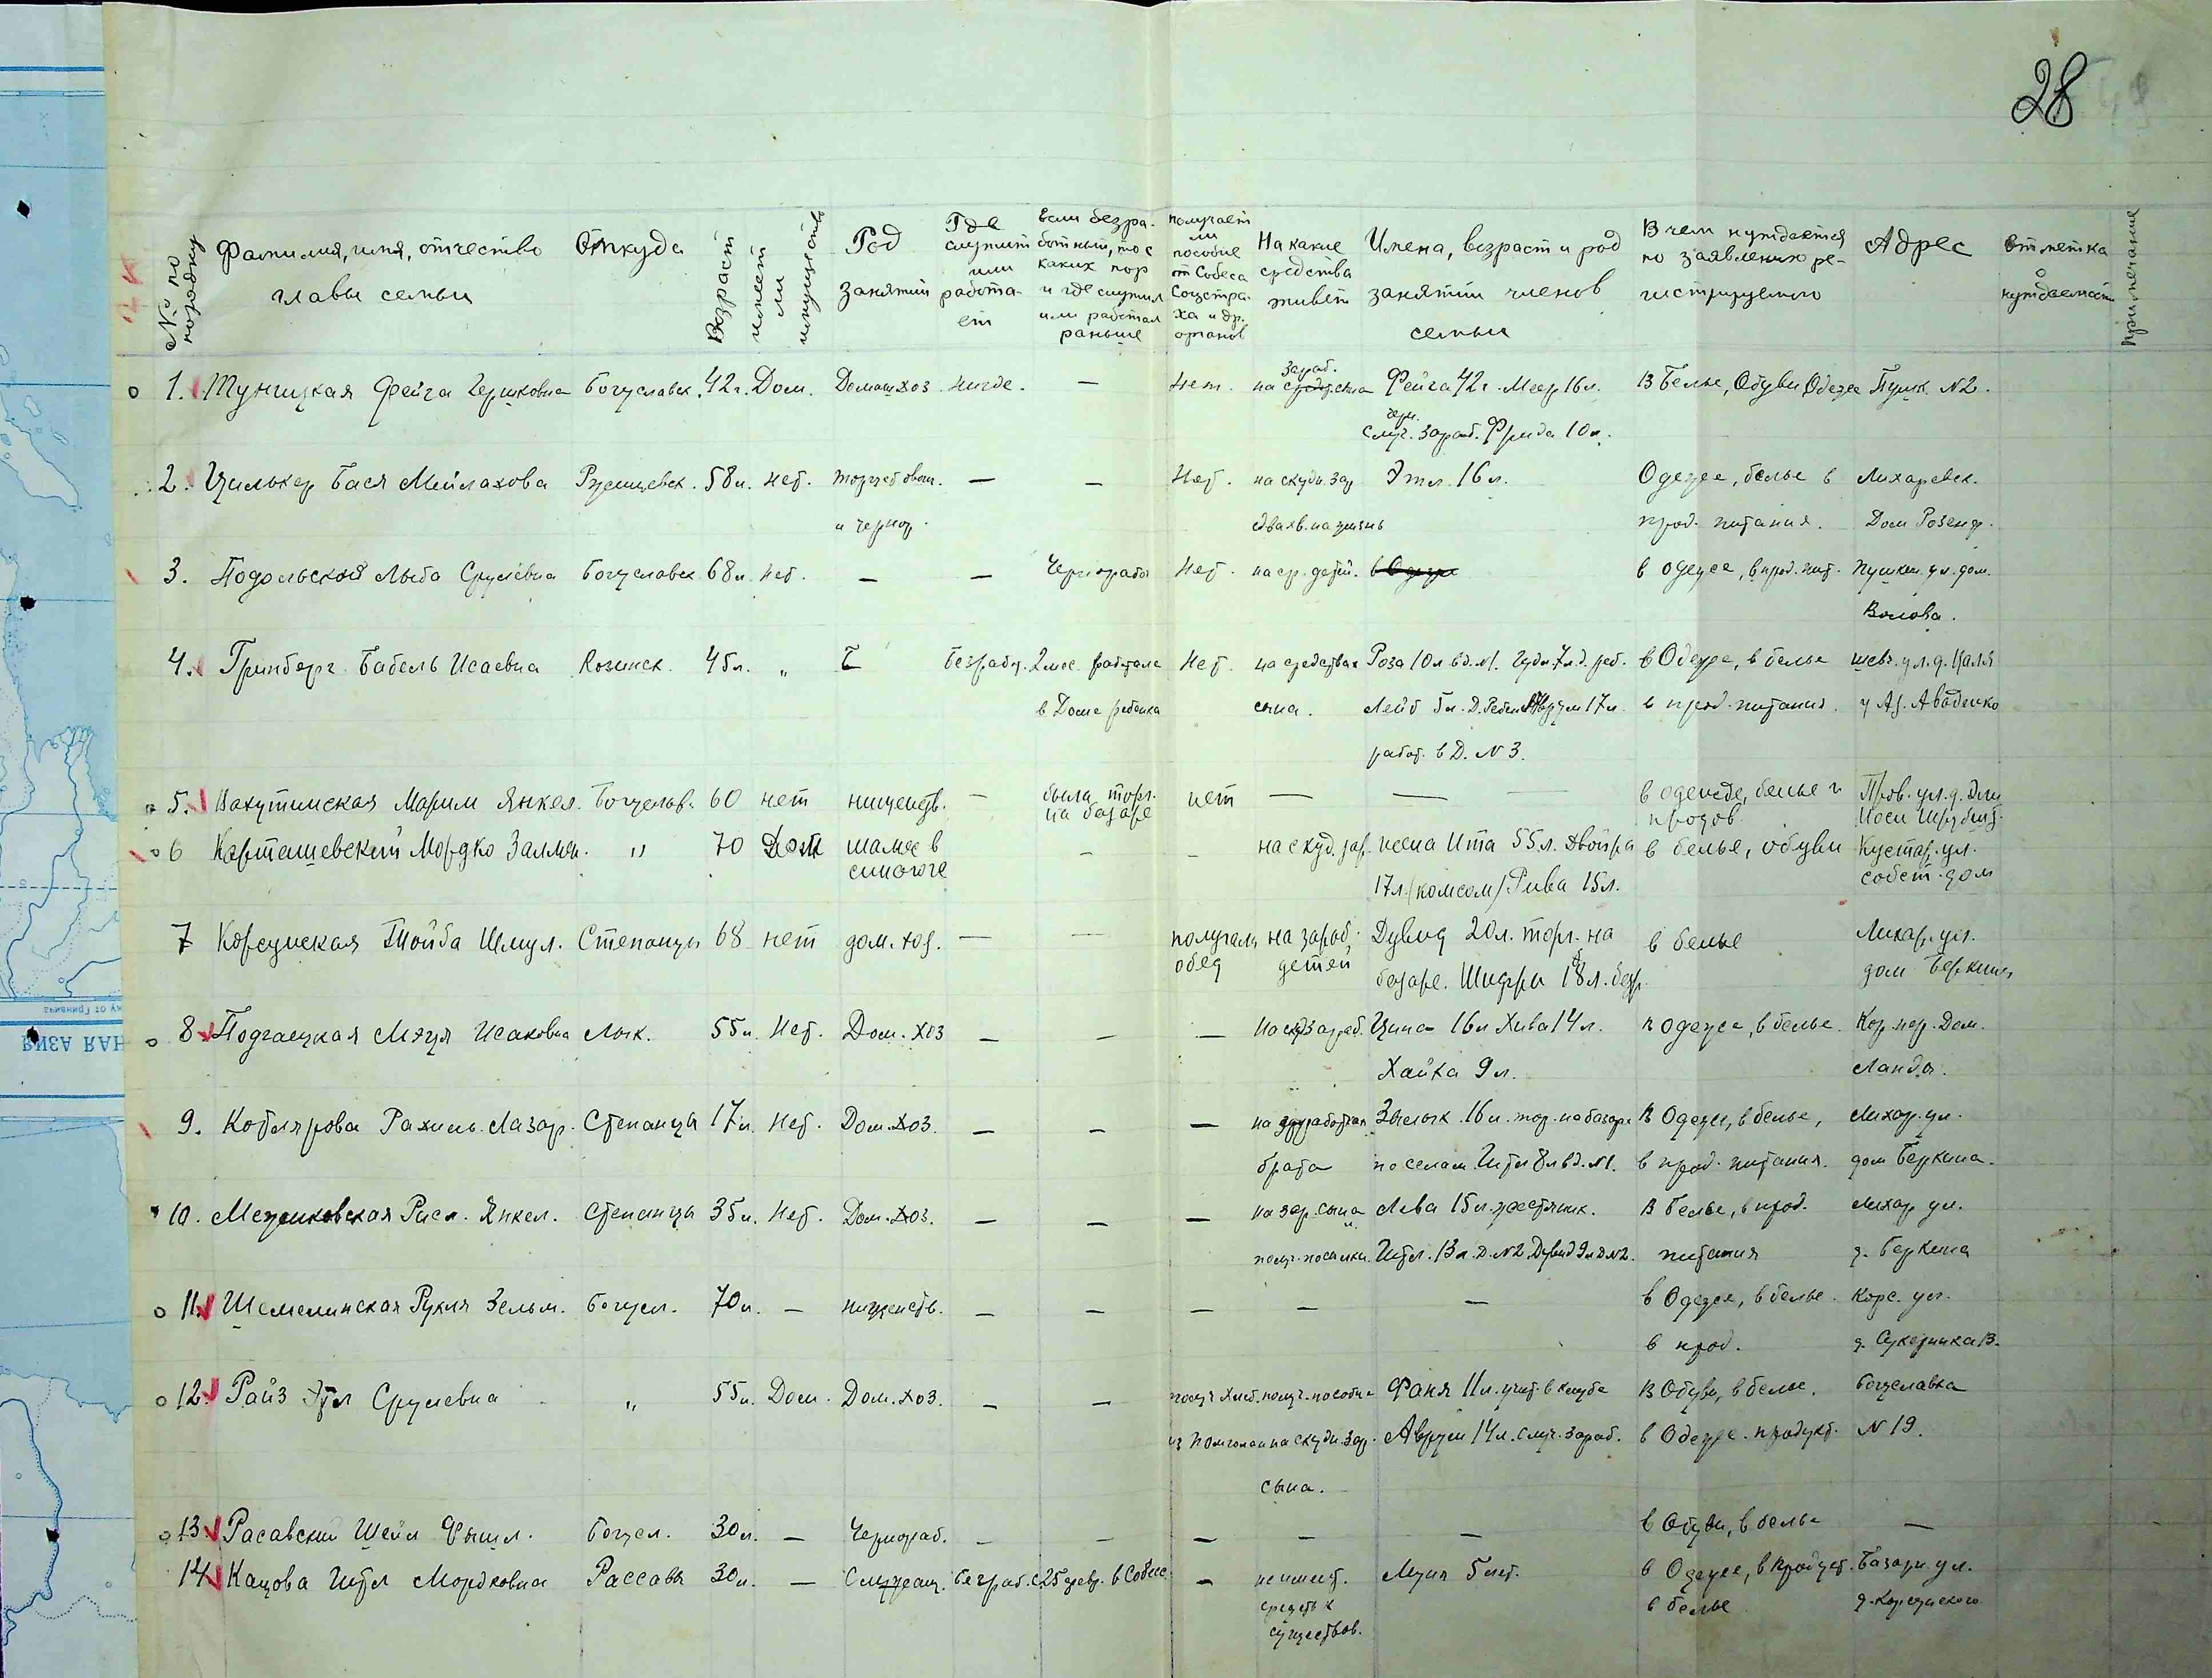 28
№ по порядку
Фамилия, имя, отчество главы семьи
Откуда
Возраст
имеет ли имущество
Род занятий
Где служит или работает
если безработный, то с каких пор и где служил или работал раньше
получает ли пособие от Собеса Соцстраха и др. органов
На какие средства живёт
Имена, возраст и род занятий членов семьи
В чем нуждается по заявлению регистрируемого
Адрес
Отметка о нуждаемости
примечание
1. Фейга Гершковна Богуславск. 42 г. Дом. Домаш хоз. нигде. — Нет. на Фейга 42 г. Меер 16 л. В Белье, Обуви, Одежде Пушк. N 2.
зараб.
случ. зараб. Фрида 10 л.
2. Цилькер Бася Мейлахова 58 л. нет. — — Нет. на скудн. зар Этл 16 л. Одежде, белье в Лихаревск.
и чернор. на жизнь прод. питания. Дом Розенф.
3. Подольской Лыба Срулевна Богуславск 68 л. нет. — — Чернорабо Нет. на ср. детей. в одежде, в прод. пит. Пушкин. ул. дом.
Волова.
4. Гринберг Бабель Исаевна Козинск. 45 л. " безработ. 2 мес. работала Нет. на средствах Роза 10 л. в д. N1. 7 л. д. реб. в Одежде, в белье шевч. ул. д. Цаля
в Доме ребенка сына. Лейб 5 л. Д. Ребен Аврум 17 л. в прод. питания. у Аваденко
работ. в Д. N 3.
5. Вахутинская Марим Янкел. Богуславс. 60 нет нищенств. — была торг. на базаре нет — — — в одежде, белье и продов. Пров. ул. д.
6 Карташевский Мордко Залман. " 70 Дом шамес в синогоге — — на скуд. зар. жена Ита 55 л. Двойра в белье, обуви Кустар. ул. собст. дом
17 л. /комсом/ Рива 15 л.
7 Корсунская Тойба Шмул. Степанцы 68 нет дом. хоз. — — получала обед на зараб. детей Дувид 20 л. торг. на в белье Лихар. ул.
базаре. Шифра 18 л. безр. дом Беркина
8 Подгаецкая Исаковна 55 л. Нет. Дом. хоз — — — На зараб. Циna 16 л Хива 14 л. в одежде, в белье. Кор. пер. Дом.
Хайка 9 л. Ланда.
9. Котлярова Рахиль Лазар. Степанцы 17 л. Нет. Дом. хоз. — — — на 16 л. тор. на базаре В Одежде, в белье, Лихар. ул.
брата по селам. Итл 8 л в д. N1. в прод. питания. дом Беркина.
10. Рися Янкел. Степанцы 35 л. Нет. Дом. хоз. — — — на зар. сына и Лева 15 л. жестяник. В Белье, в прод. Лихар ул.
получ. посылки. Итл. 13 л. Д. N2 Дувид 9 л Д N2. питания д. Беркина
11. Шемелинская Рухля Зельм. Богусл. 70 л. — нищенств. — — — — — в Одежде, в белье. Корс. ул.
в прод.
12. Райз Этл Срулевна " 55 л. Дом. Дом. хоз. — — получ. пособие Фаня 11 л. учит. в клубе В Обуви, в белье. Богуславка
на скудн. зар. Аврум 14 л. случ. зараб. в Одежде. продукт. N 19.
сына.
13 Расавский Шейл Фишл. Богусл. 30 л. — Чернораб. — — — — — в Обуви, в белье —
14. Кацова Итл Мордковна Рассава 30 л. — Служащ. безраб. с 25 февр. в Собесе. — не имеет. Муня 5 лет. в Одежде, в продукт. Базарн. ул.
средств к в белье д. Корсунского
существов.